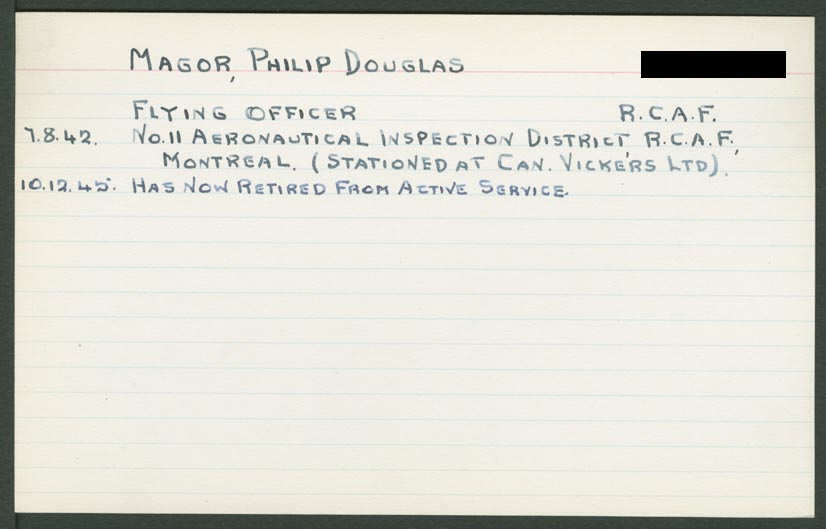 MAGOR, PHILIP DOUGLAS
FLYING OFFICER R.C.A.F.
7.8.42. NO.11 AERONAUTICAL INSPECTION DISTRICT, R.C.A.F.,
MONTREAL. (STATIONED AT CAN. VICKERS LTD).
10.12.45. HAS NOW RETIRED FROM ACTIVE SERVICE.